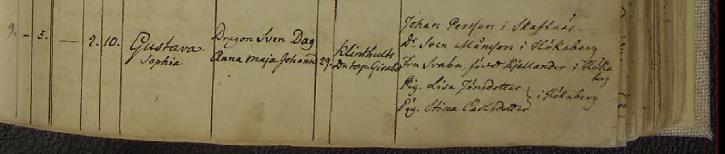 9. - 5. — 9. 10. Gustava
Sophia
Dragon Sven Dag
Anna Maja Johansd
29.
Klinthults
Dr. torp.
Johan Persson i Skaftnäs
Dr. Sven Månsson i Hökaberg
Fru Svahn, född Kjellander i Höka
berg
Pig. Lisa Jönsdotter
Pig. Stina Carlsdotter
i Hökaberg